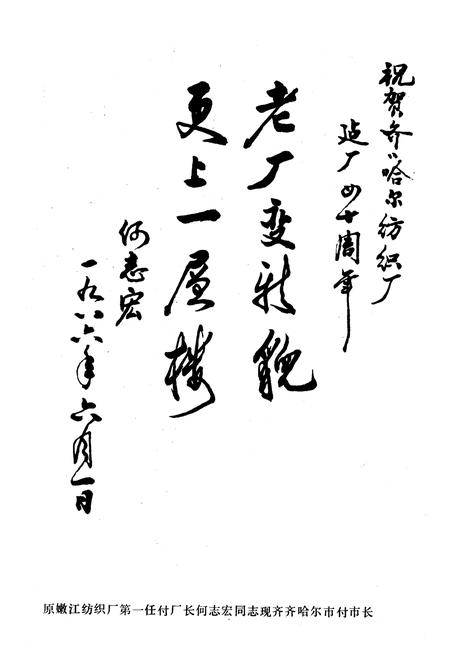 祝贺齐〻哈尔纺织厂
建厂四十周年
老厂变新貌
更上一层楼
何志宏
一九八六年六月一日
原嫩江纺织厂第一任付厂长何志宏同志现齐齐哈尔市付市长